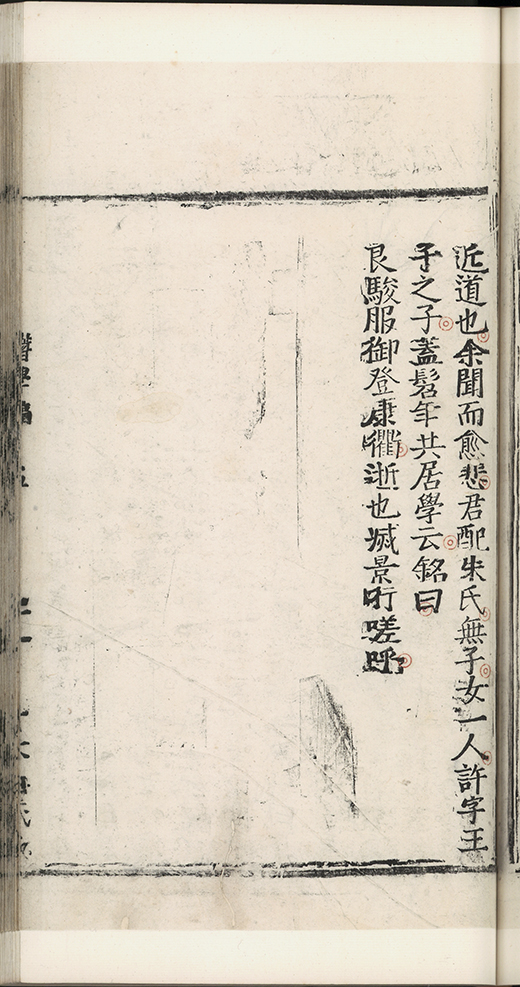 近道也余聞而愈悲君配朱氏無子女一人許字王
子之子蓋髫年共居學云銘曰
良駿服御登康衢逝也滅景吁嗟呼